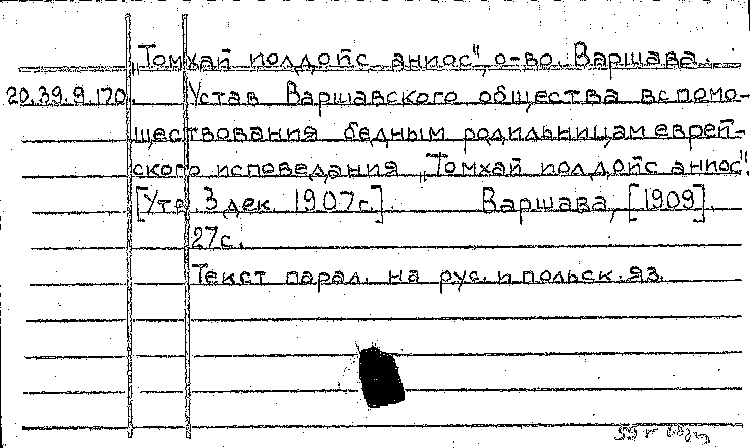 „Томхай иолдойс аниос", о-во. Варшава.
20.39.9.170. Устав Варшавского общества вспомо-
ществования бедным родильницам еврей-
ского исповедания „Томхай иолдойс аниос".
[Утв. 3 дек. 1907 г.]. Варшава, [1909].
27 с.
Текст парал. на рус. и польск. яз.